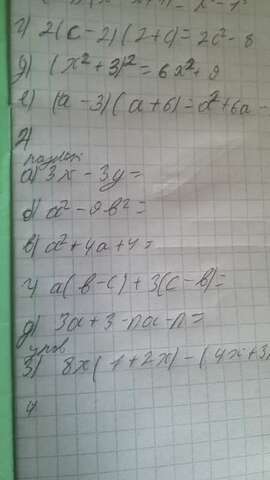 г) 2(c-2)(2+c)=2c²-8
д) (x²+3)²=6x²+9
е) (a-3)(a+6)=a²+6a-
2)
разлож
а) 3x-3y=
б) a²-9b²=
в) a²+4a+4=
г) a(b-c)+3(c-b)=
д) 3a+3-na-n=
упр
3) 8x(1+2x)-(4x+3
4